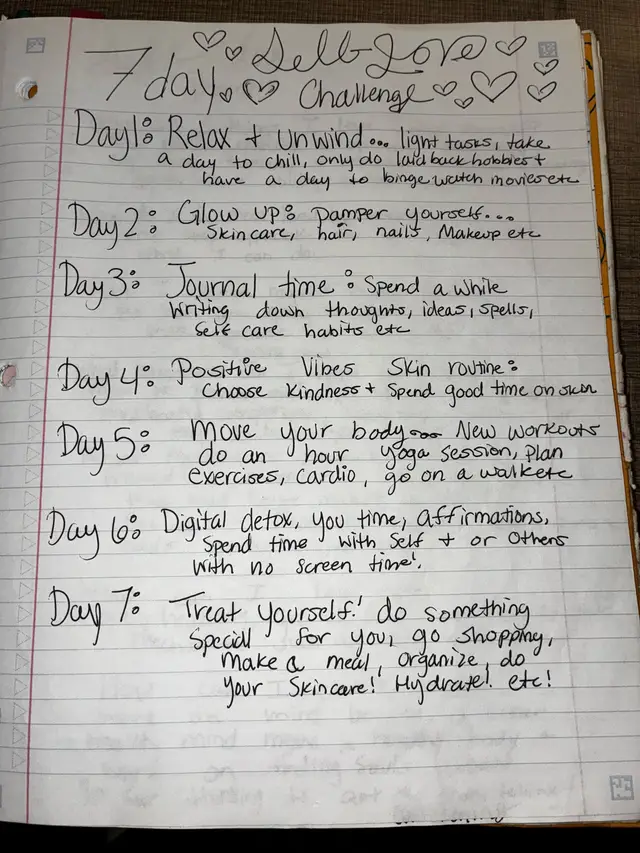 7 day Self Love
Challenge
Day 1: Relax + Unwind... light tasks, take
a day to chill, only do laid back hobbies +
have a day to binge watch movies etc
Day 2: Glow up: pamper yourself...
Skincare, hair, nails, Makeup etc
Day 3: Journal time: Spend a while
Writing down thoughts, ideas, spells,
Self care habits etc
Day 4: Positive Vibes Skin routine:
Choose Kindness + Spend good time on skin
Day 5: Move your body... New workouts
do an hour yoga session, plan
exercises, cardio, go on a walk etc
Day 6: Digital detox, you time, affirmations,
Spend time with Self + or Others
with no screen time!
Day 7: Treat yourself! do something
Special for you, go shopping,
Make a meal, organize, do
your Skincare! Hydrate! etc!